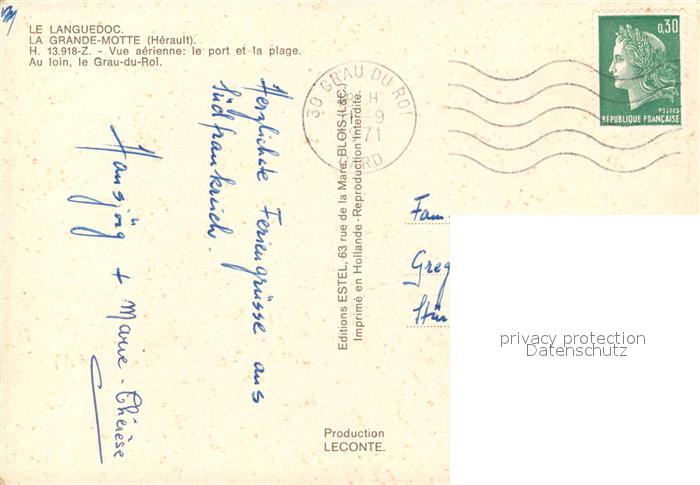 LE LANGUEDOC.
LA GRANDE-MOTTE (Hérault).
H. 13.918-Z. - Vue aérienne: le port et la plage.
Au loin, le Grau-du-Roi.
0,30
POSTES
REPUBLIQUE FRANÇAISE
30 GRAU DU ROI
H
-9
71
GARD
Herzlichste Feriengrüsse aus
Südfrankreich.
Hansjörg + Marie-Thérèse
Editions ESTEL, 63 rue de la Mare, BLOIS (L&C.)
Imprimé en Hollande - Reproduction Interdite.
Fam
Greg
privacy protection
Datenschutz
Production
LECONTE.